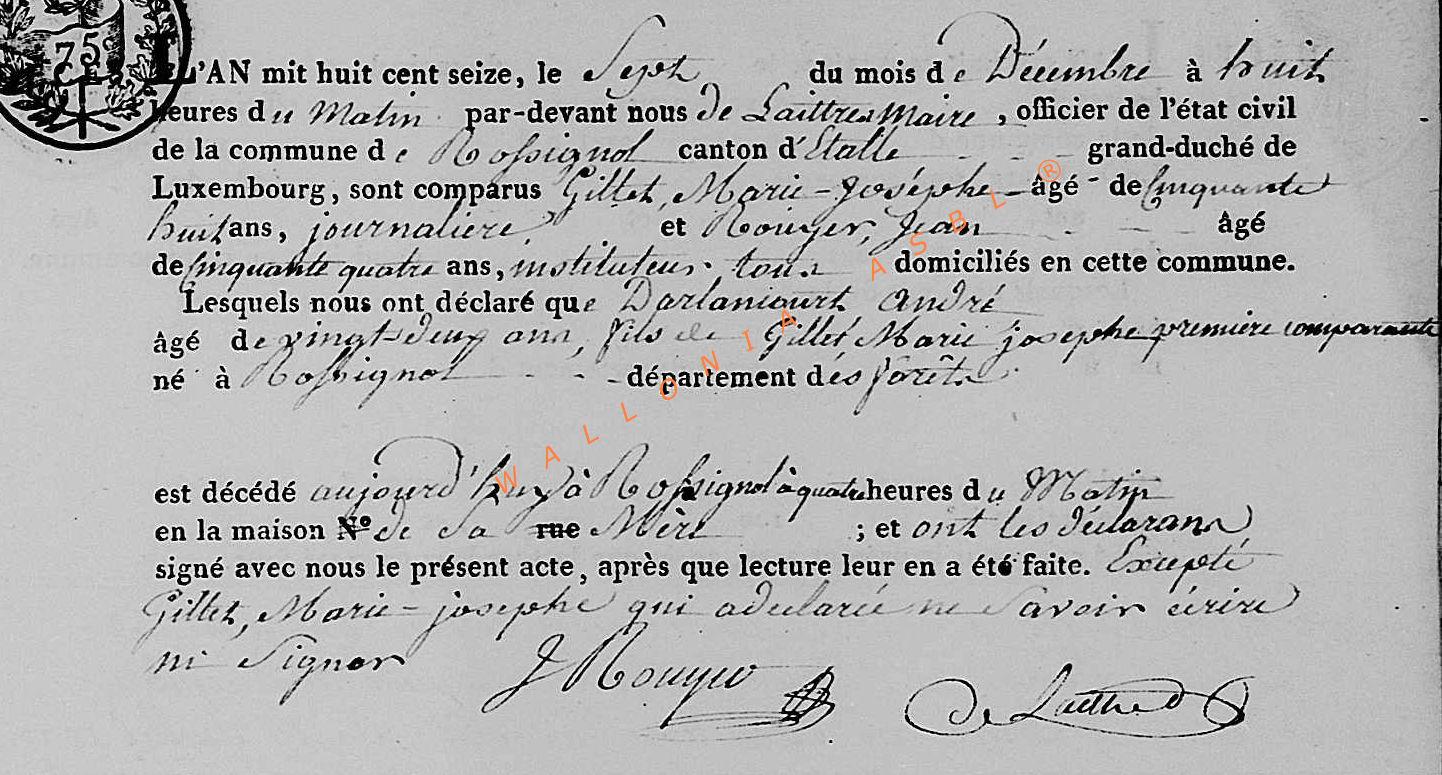 75
L'AN mit huit cent seize, le Sept du mois de Décembre à huit
heures du Matin par-devant nous de Laittres Maire, officier de l'état civil
de la commune de Rossignol canton d'Etalle - - - grand-duché de
Luxembourg, sont comparus Gillet, Marie-Josephe - âgé - de Cinquante
huit ans, journaliere, et Rouyer, Jean - - - âgé
de Cinquante quatre ans, instituteur. tous domiciliés en cette commune.
Lesquels nous ont déclaré que Darlancourt, André
âgé de vingt-deux ans, fils de Gillet, Marie josephe première comparante
né à Rossignol - - - département des forêts
est décédé aujourd'huy à Rossignol à quatre heures du Matin
en la maison N° de Sa rue Mère ; et ont les déclarans
signé avec nous le présent acte, après que lecture leur en a été faite. Excepté
Gillet, Marie-josephe qui a déclarée ne Savoir écrire
ni Signer J Rouyer de Laittres
WALLONIA ASBL ®